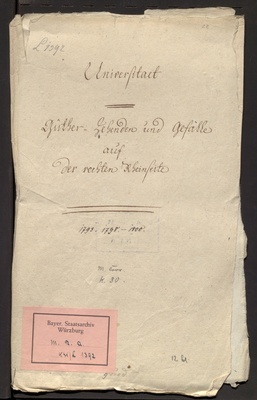 L 1392
Universitaet
Güther-Zehenden und Gefälle
auf
der rechten Rheinseite
1798.-1800.
N. 30.
Bayer. Staatsarchiv
Würzburg
M. R. A
1392